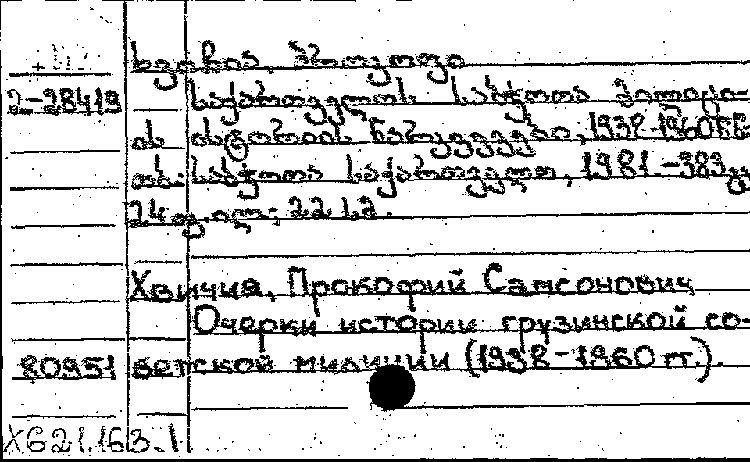 ხვიჩია, პროკოფი
2-28419 საქართველოს საბჭოთა მილიცი-
ის ისტორიის ნარკვევები, 1938-1960წწ
თბ: საბჭოთა საქართველო, 1981 - 383გვ
24
Хвичия, Прокофий Самсонович
Очерки истории грузинской со-
80951 ветской милиции (1938-1960 гг.).
X621.163.1